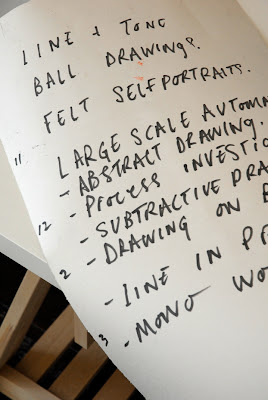 LINE + TONE
BALL DRAWING?.
FELT SELFPORTRAITS.
11 LARGE SCALE AUTOMA
- ABSTRACT DRAWING.
- PROCESS INVESTIG
12 - SUBTRACTIVE DRA
- DRAWING ON
2 - LINE IN PR
3 - MONO WO